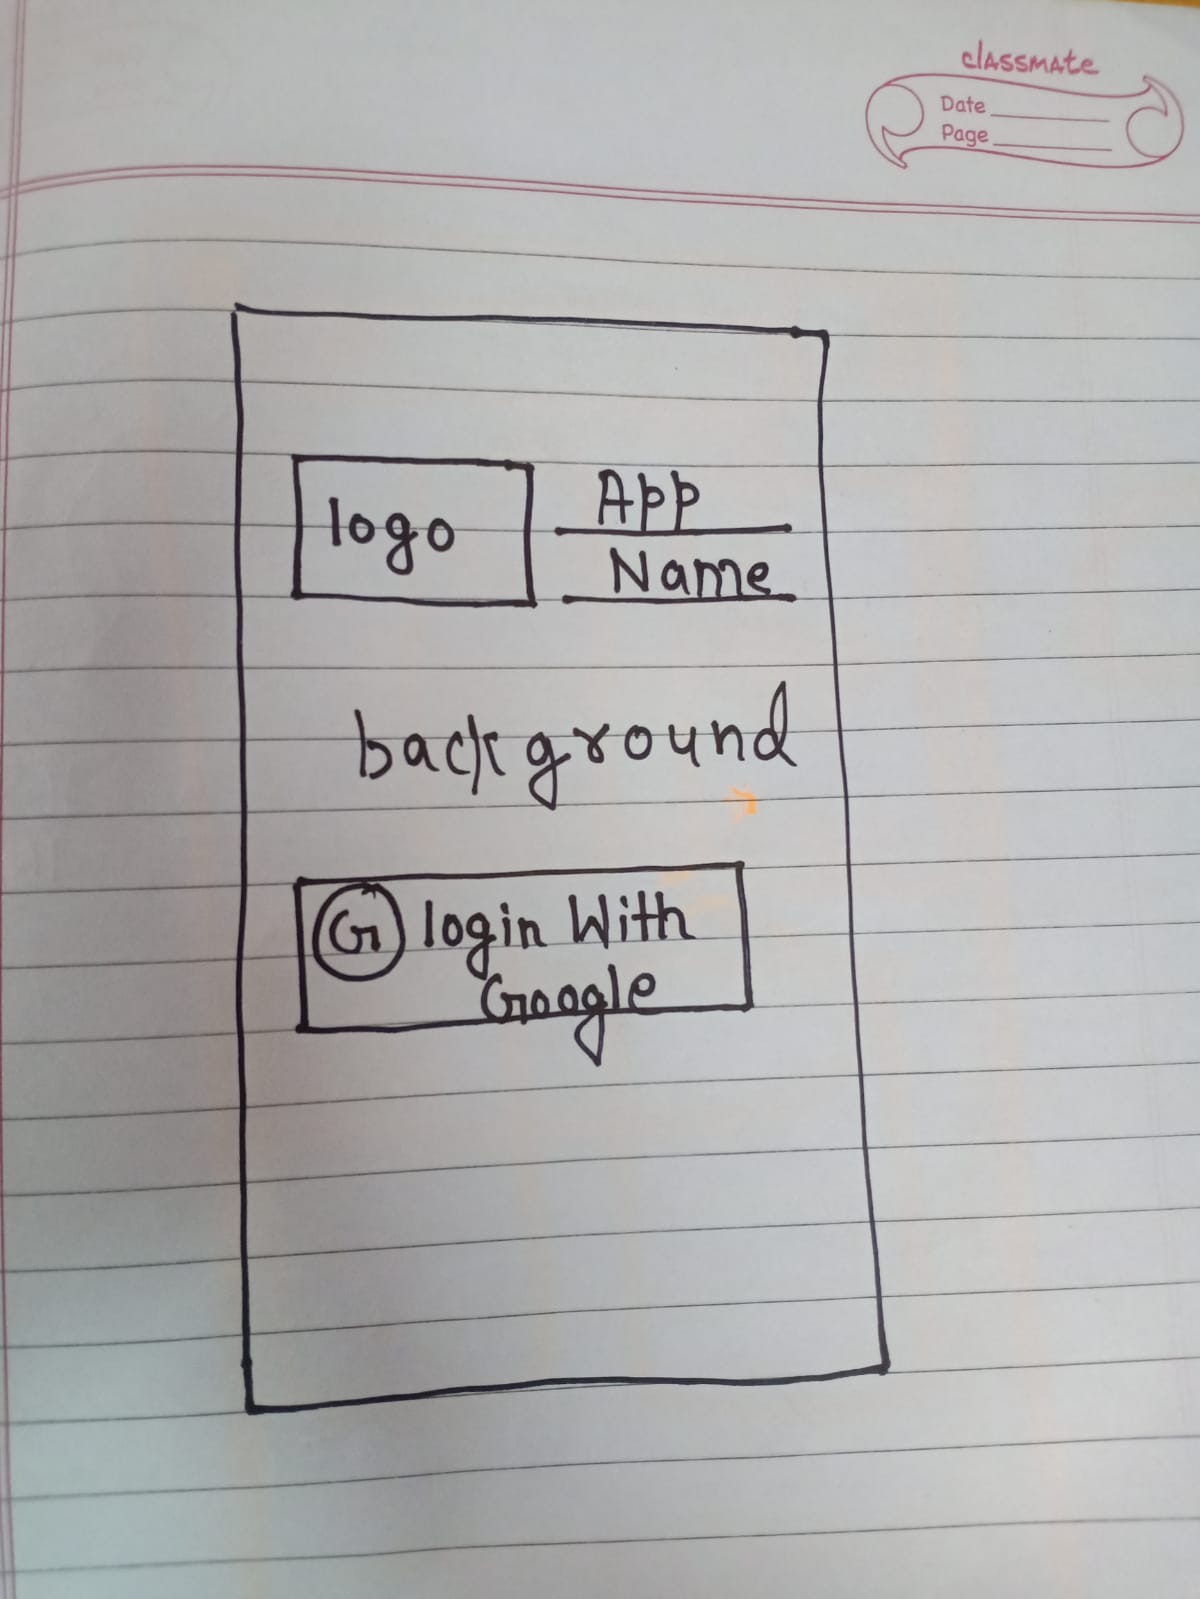 classmate
Date
Page
logo
App
Name
background
G login With
Google